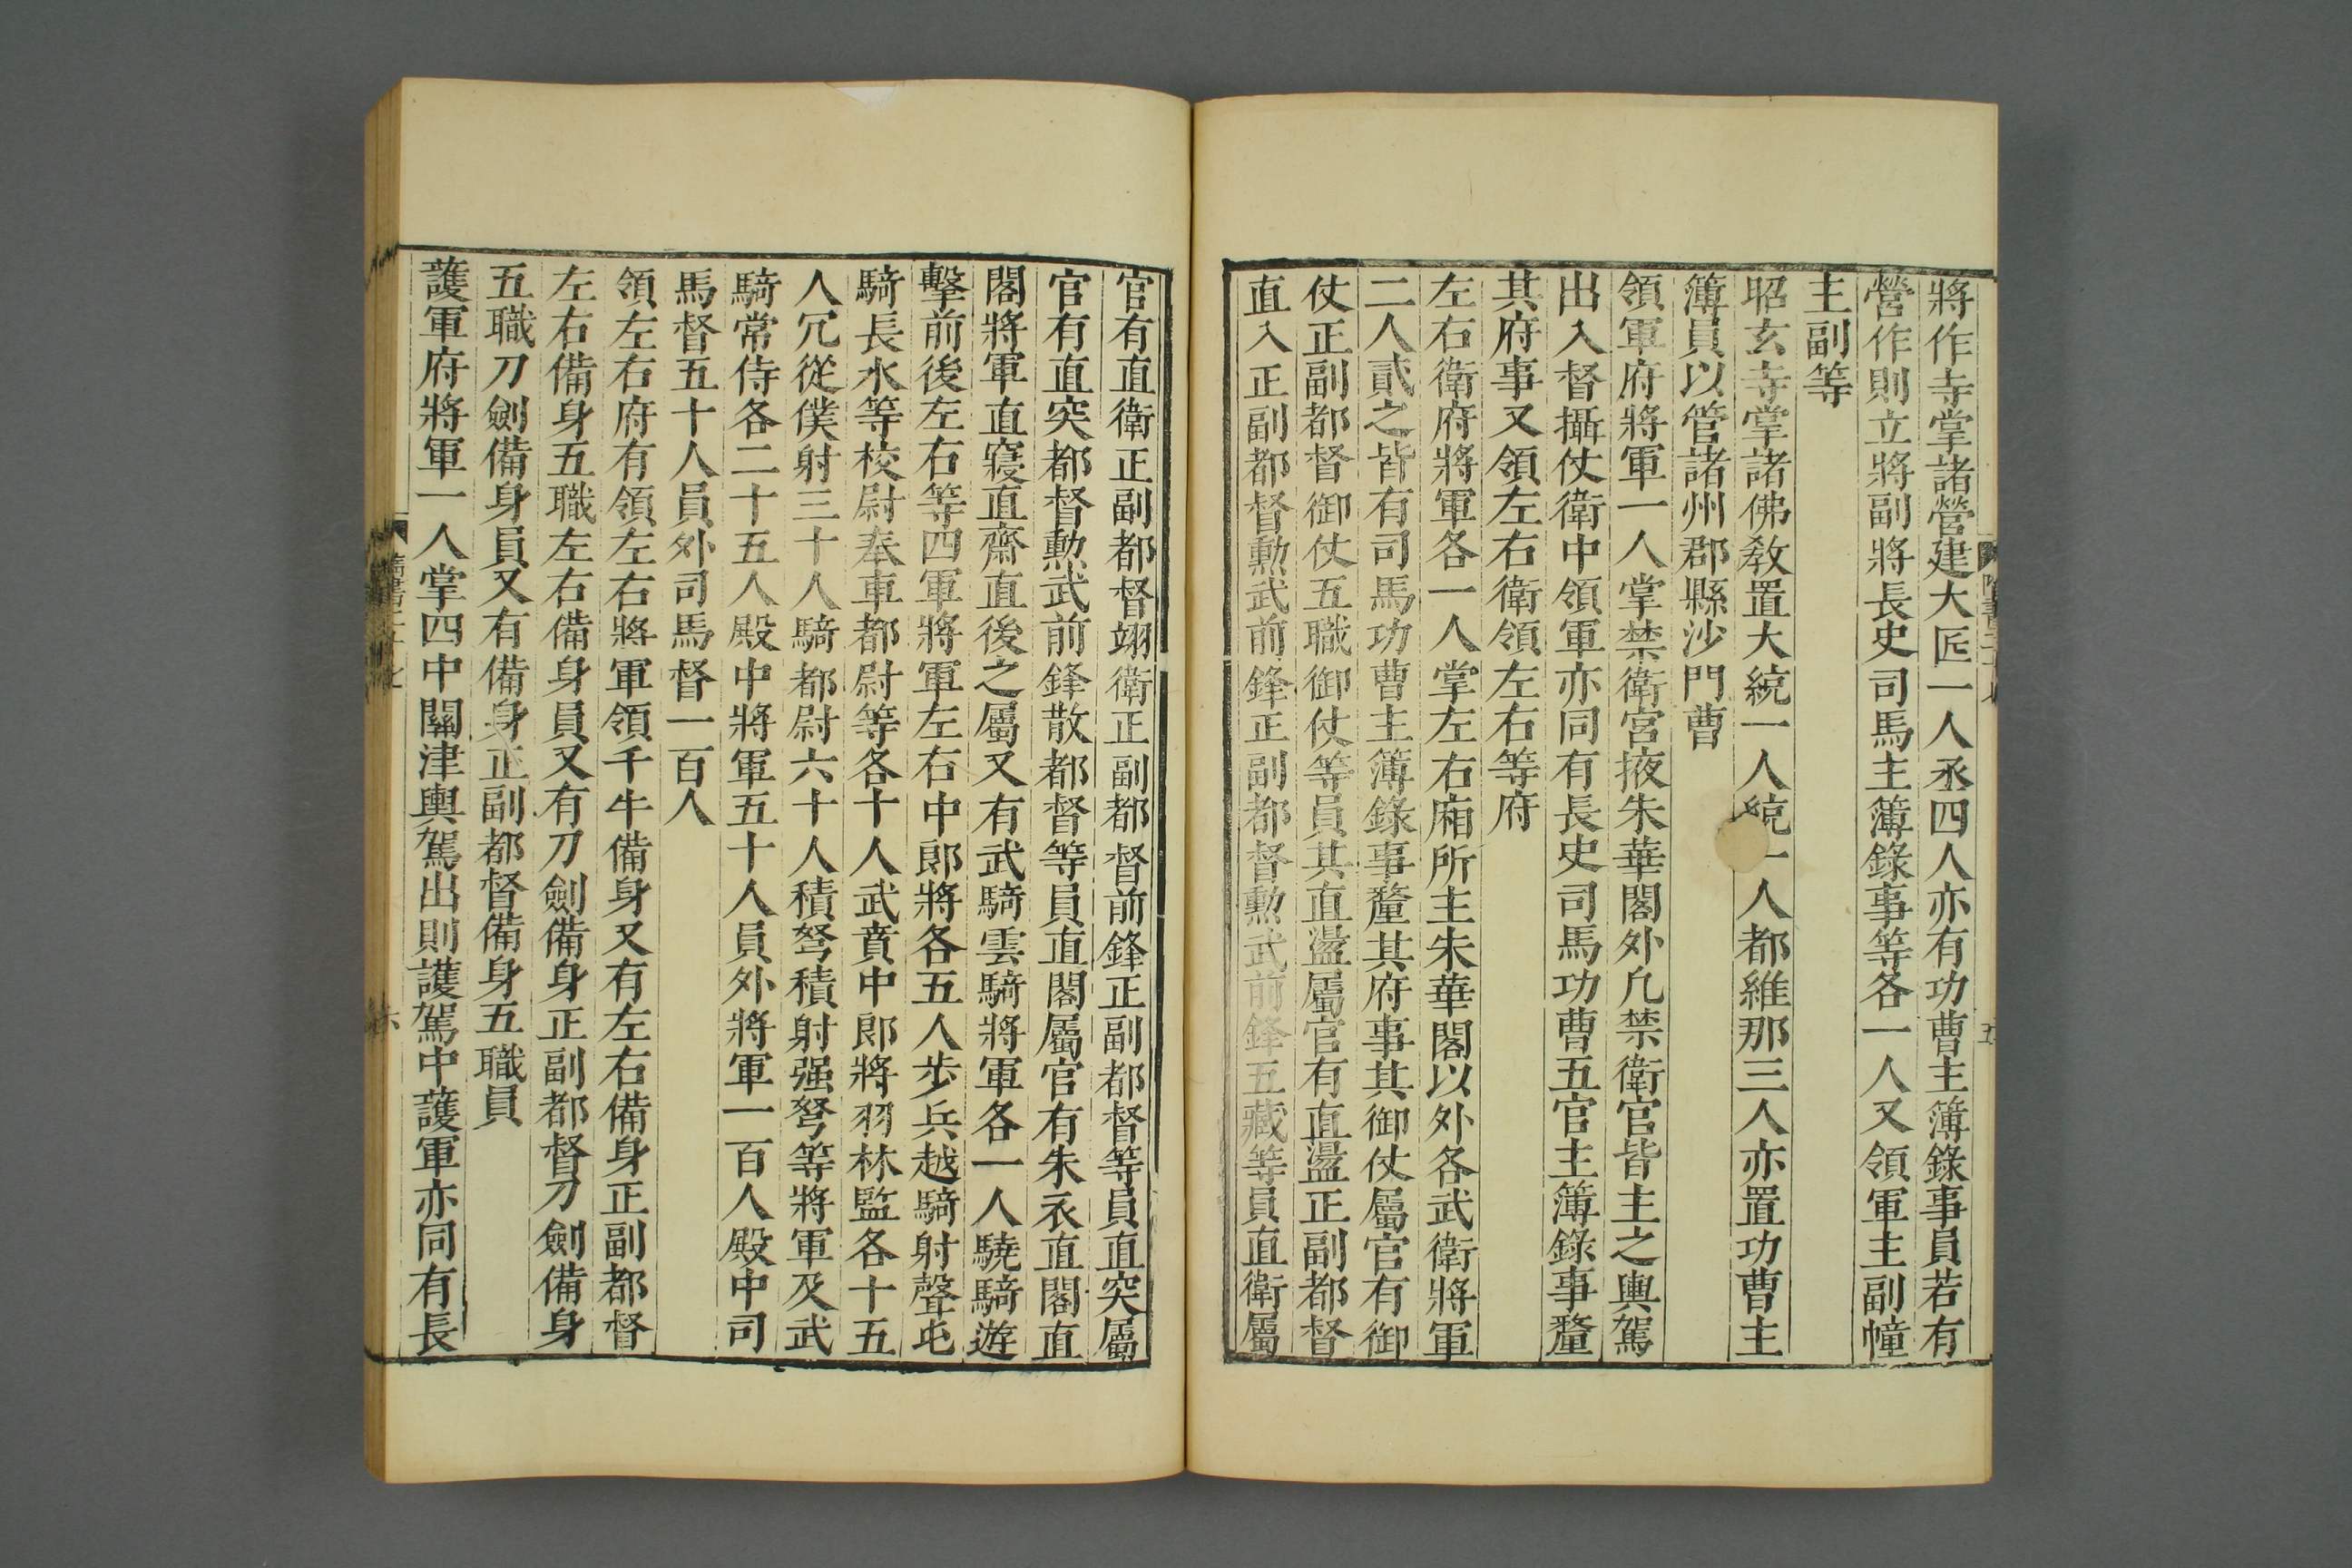 將作寺掌諸營建大匠一人丞四人亦有功曹主簿錄事員若有
營作則立將副將長史司馬主簿錄事等各一人又領軍主副幢
主副等
昭玄寺掌諸佛敎置大統一人統一人都維那三人亦置功曹主
簿員以管諸州郡縣沙門曹
領軍府將軍一人掌禁衛宮掖朱華閣外凡禁衛官皆主之輿駕
出入督攝仗衛中領軍亦同有長史司馬功曹五官主簿錄事釐
其府事又領左右衛領左右等府
左右衛府將軍各一人掌左右廂所主朱華閣以外各武衛將軍
二人貳之皆有司馬功曹主簿錄事釐其府事其御仗屬官有御
仗正副都督御仗五職御仗等員其直盪屬官有直盪正副都督
直入正副都督勳武前鋒正副都督勳武前鋒五藏等員直衛屬
官有直衛正副都督翊衛正副都督前鋒正副都督等員直突屬
官有直突都督勳武前鋒散都督等員直閣屬官有朱衣直閣直
閣將軍直寢直齋直後之屬又有武騎雲騎將軍各一人驍騎遊
擊前後左右等四軍將軍左右中郎將各五人步兵越騎射聲屯
騎長水等校尉奉車都尉等各十人武賁中郎將羽林監各十五
人冗從僕射三十人騎都尉六十人積弩積射强弩等將軍及武
騎常侍各二十五人殿中將軍五十人員外將軍一百人殿中司
馬督五十人員外司馬督一百人
領左右府有領左右將軍領千牛備身又有左右備身正副都督
左右備身五職左右備身員又有刀劍備身正副都督刀劍備身
五職刀劍備身員又有備身正副都督備身五職員
護軍府將軍一人掌四中關津輿駕出則護駕中護軍亦同有長